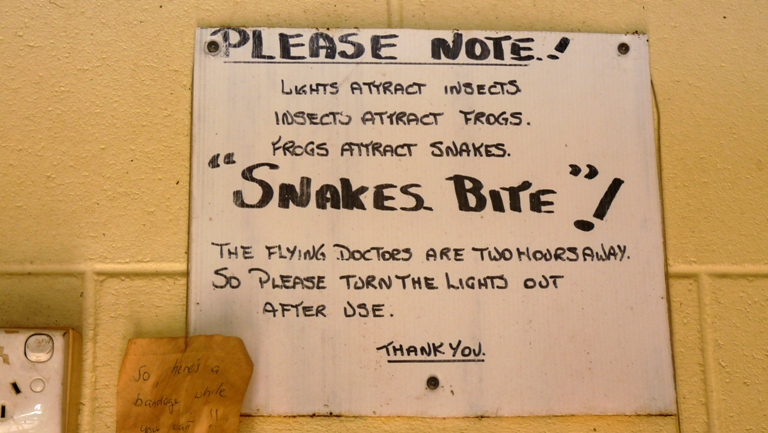 PLEASE NOTE.!
LIGHTS ATTRACT INSECTS.
INSECTS ATTRACT FROGS.
FROGS ATTRACT SNAKES.
"SNAKES BITE"!
THE FLYING DOCTORS ARE TWO HOURS AWAY.
SO PLEASE TURN THE LIGHTS OUT
AFTER USE.
THANK YOU.
So, here's a
bandage while
you